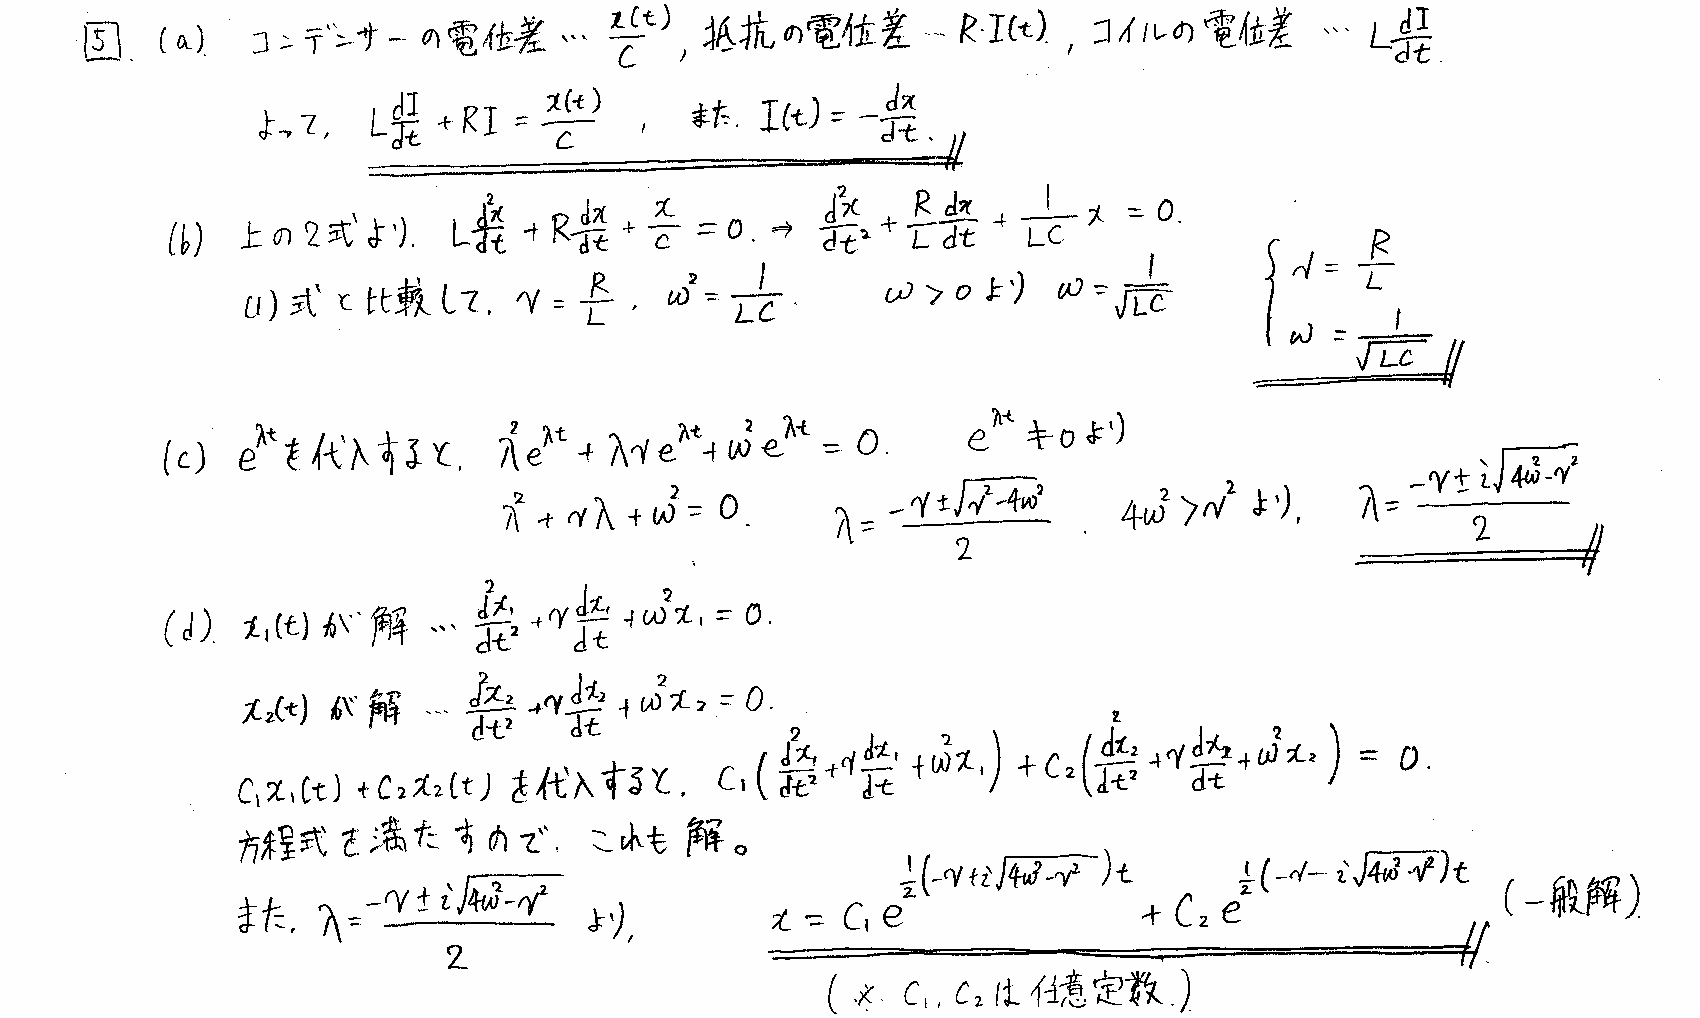 5 (a) コンデンサーの電位差…x(t)/C, 抵抗の電位差…R・I(t), コイルの電位差…L dI/dt
よって, L dI/dt + RI = x(t)/C , また. I(t) = -dx/dt.
(b) 上の2式より. L d²x/dt + R dx/dt + x/C = 0. → d²x/dt² + R/L dx/dt + 1/LC x = 0.
(1)式と比較して, γ = R/L , ω² = 1/LC . ω > 0 より ω = 1/√LC { γ = R/L
ω = 1/√LC
(c) e^λt を代入すると, λ²e^λt + λγe^λt + ω²e^λt = 0. e^λt ≠ 0 より
λ² + γλ + ω² = 0. λ = (-γ±√(γ²-4ω²))/2 . 4ω² > γ² より, λ = (-γ±i√(4ω²-γ²))/2
(d) x₁(t) が解 … d²x₁/dt² + γ dx₁/dt + ω²x₁ = 0.
x₂(t) が解 … d²x₂/dt² + γ dx₂/dt + ω²x₂ = 0.
C₁x₁(t) + C₂x₂(t) を代入すると, C₁(d²x₁/dt² + γ dx₁/dt + ω²x₁) + C₂(d²x₂/dt² + γ dx₂/dt + ω²x₂) = 0.
方程式を満たすので, これも解。
また, λ = (-γ±i√(4ω²-γ²))/2 より, x = C₁e^{1/2(-γ+i√(4ω²-γ²))t} + C₂e^{1/2(-γ-i√(4ω²-γ²))t} (一般解)
(※. C₁, C₂は任意定数.)